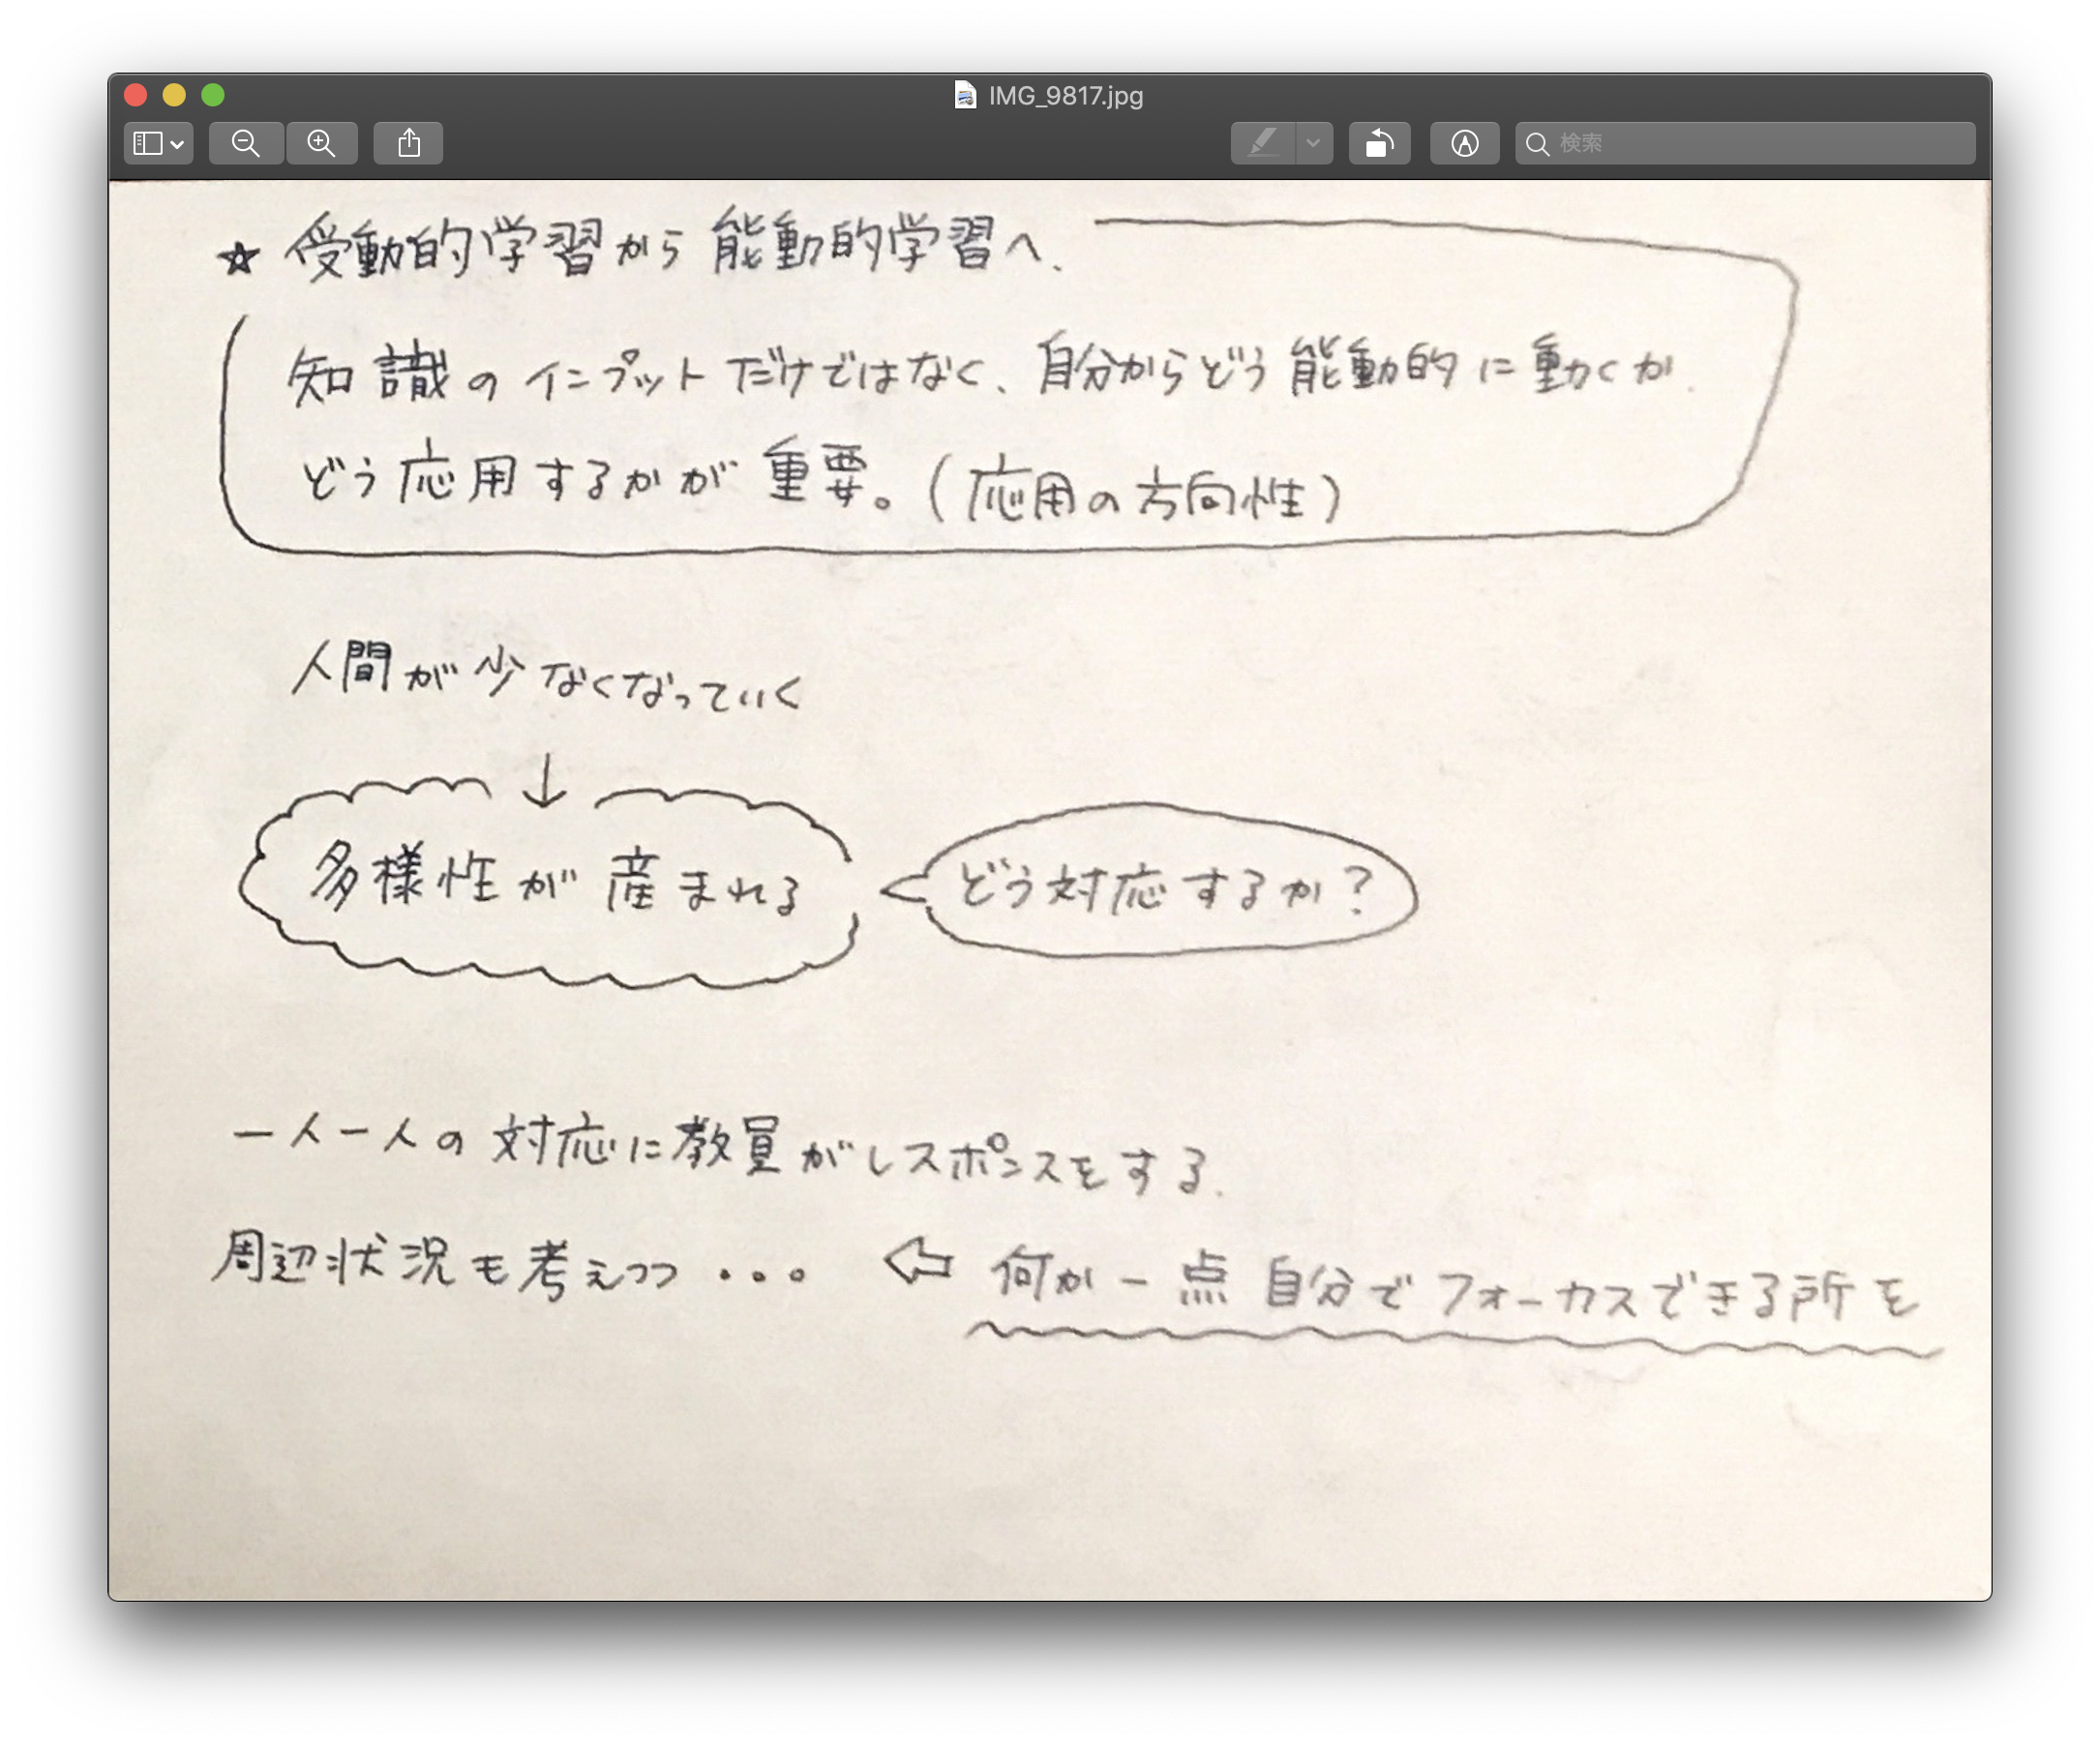 IMG_9817.jpg
検索
★ 受動的学習から能動的学習へ、
知識のインプットだけではなく、自分からどう能動的に動くか
どう応用するかが重要。(応用の方向性)
人間が少なくなっていく
↓
多様性が産まれる
どう対応するか?
一人一人の対応に教員がレスポンスをする.
周辺状況も考えつつ ... ⇦ 何か一点自分でフォーカスできる所を